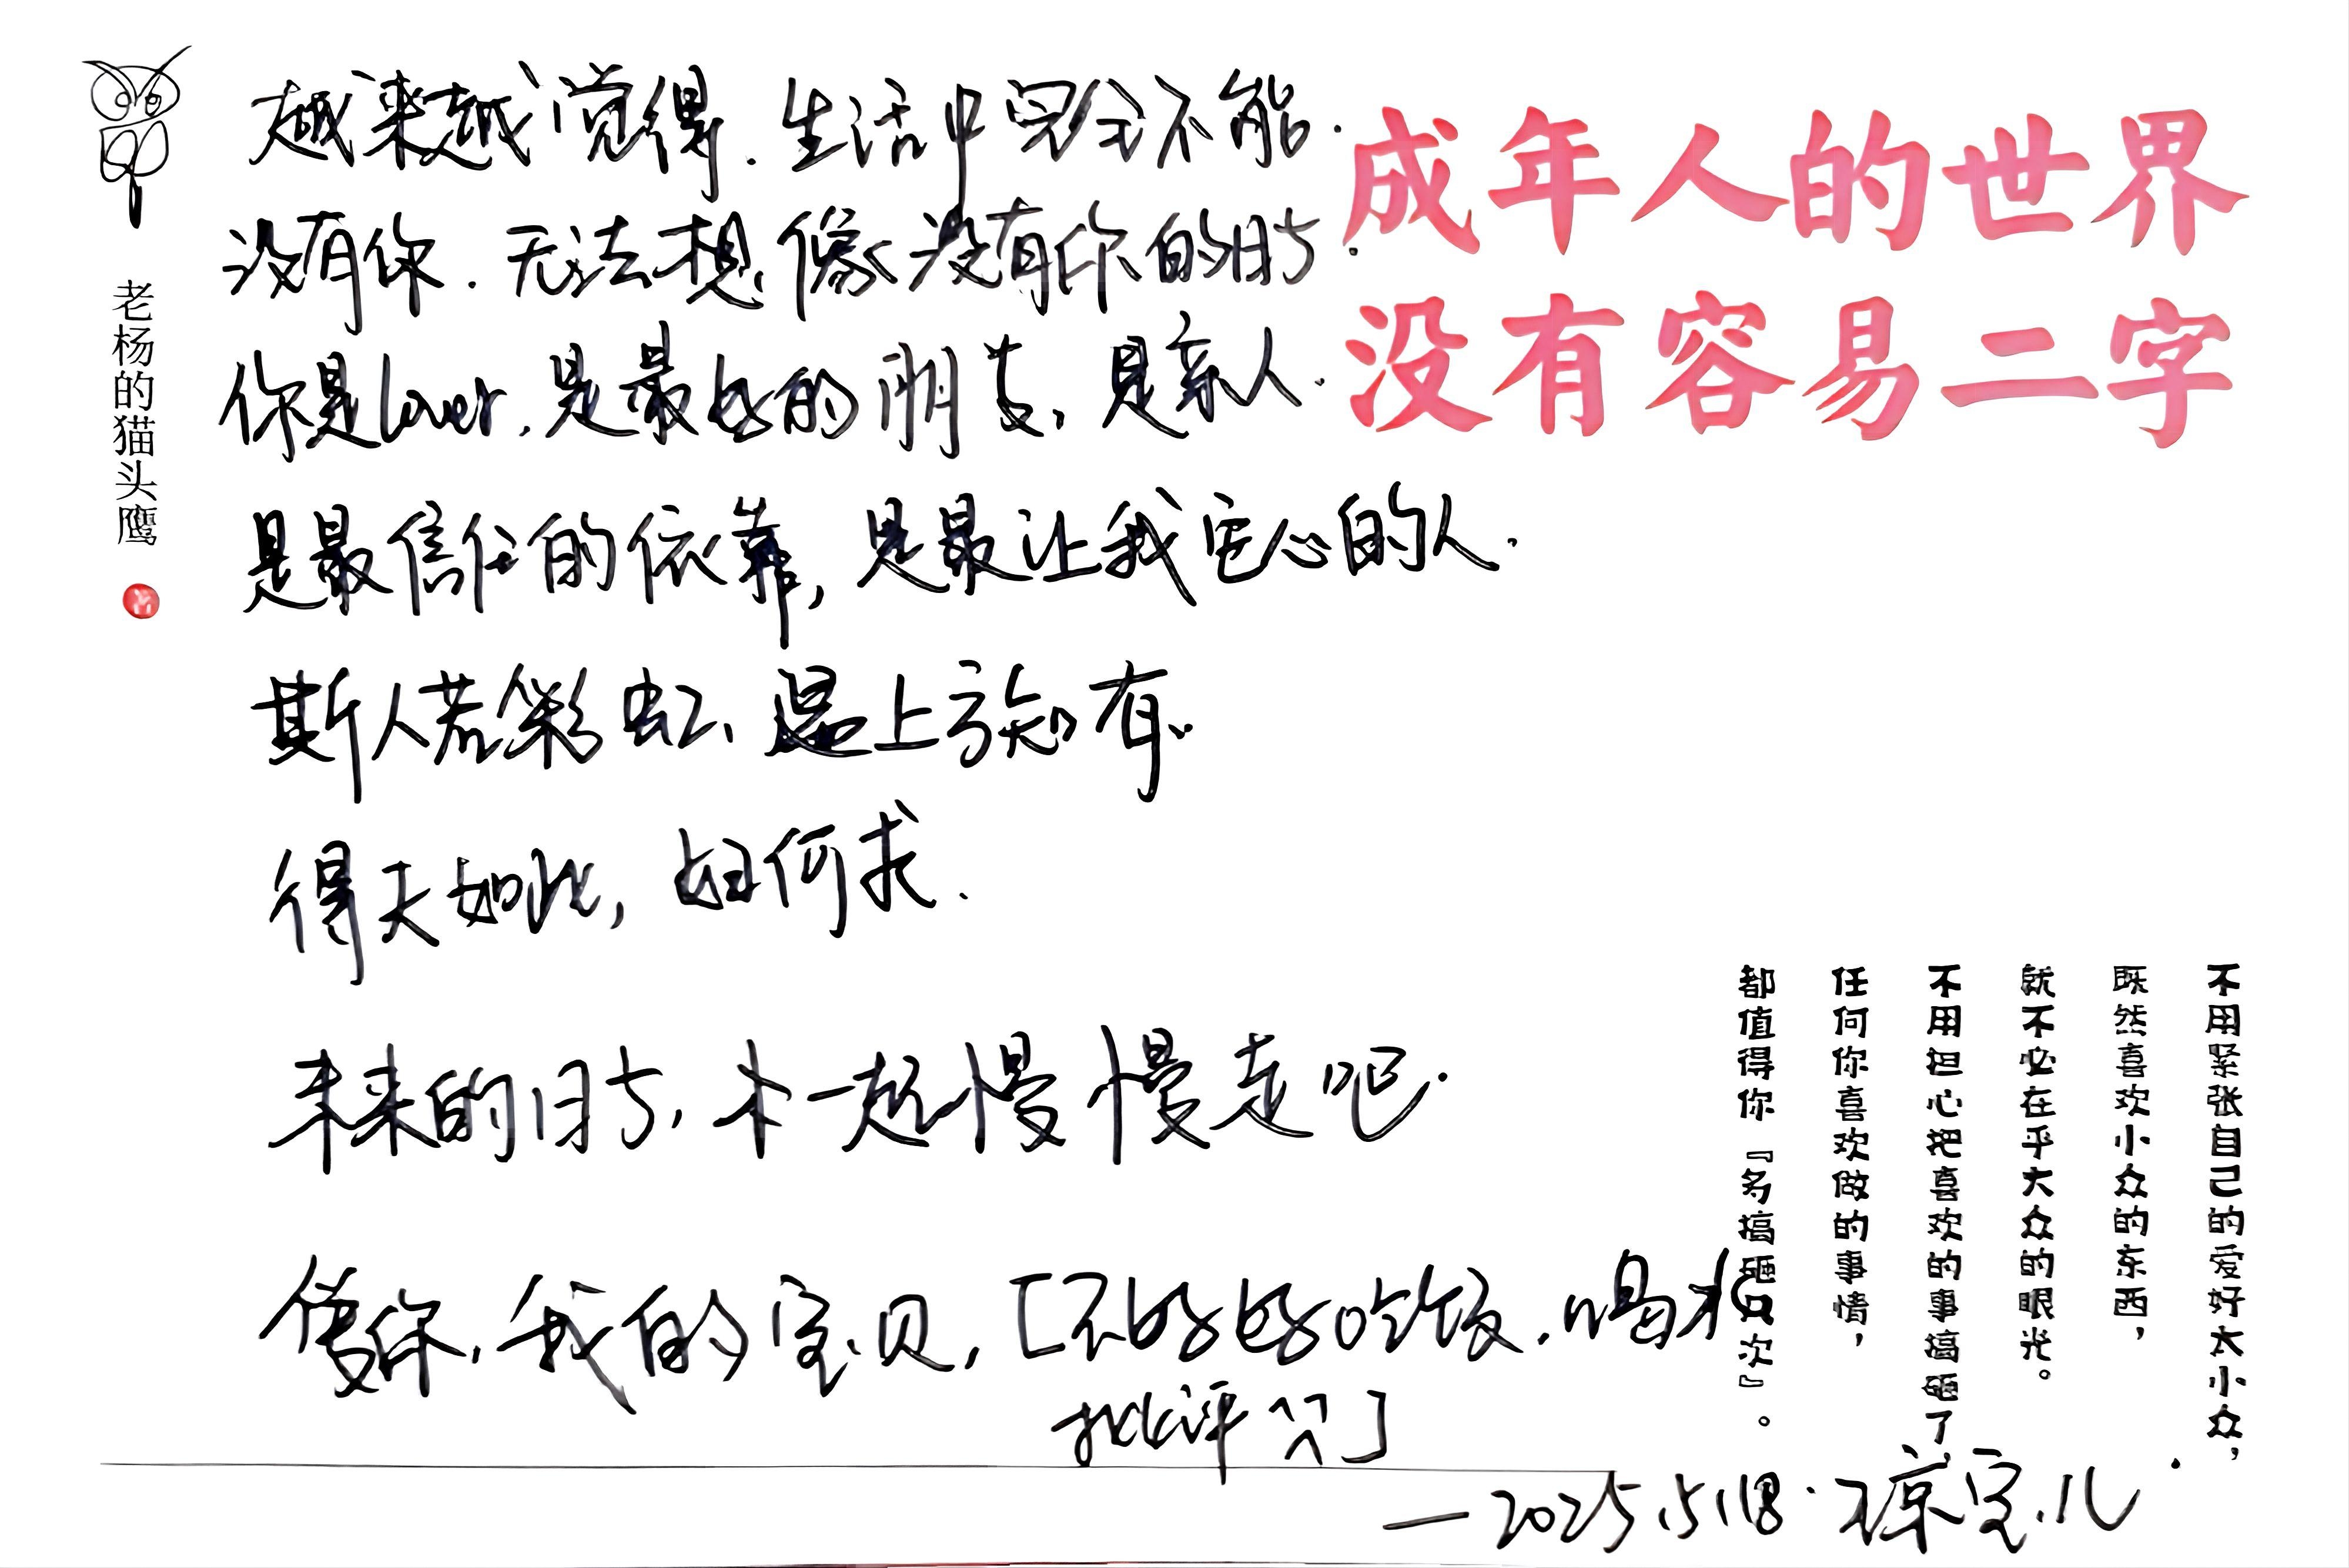 老杨的猫头鹰
越来越觉得.生活中完全不能.
没有你.无法想像没有你的日子.
你是lover.是最好的朋友,是家人.
是最信任的依靠,是最让我安心的人.
斯人若彩虹,遇上方知有.
得夫如此,如何求.
未来的日子, 一起慢慢走吧.
爱你,我的宝贝,[不好好吃饭.喝水
批评你]
—2025.5.18.
成年人的世界
没有容易二字
不用紧张自己的爱好太小众,
既然喜欢小众的东西,
就不必在乎大众的眼光。
不用担心把喜欢的事搞砸了
任何你喜欢做的事情,
都值得你『多搞砸几次』。